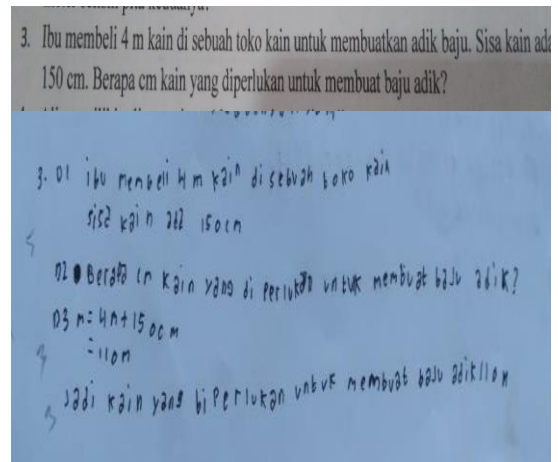 3. Ibu membeli 4 m kain di sebuah toko kain untuk membuatkan adik baju. Sisa kain ada
150 cm. Berapa cm kain yang diperlukan untuk membuat baju adik?
3. D1 ibu membeli 4 m kain di sebuah toko kain
sisa kain ada 150cm
D2 Berapa cm kain yang di perlukan untuk membuat baju adik?
D3 n = 4m + 150 cm
= 110m
Jadi kain yang biperlukan untuk membuat baju adik 110m